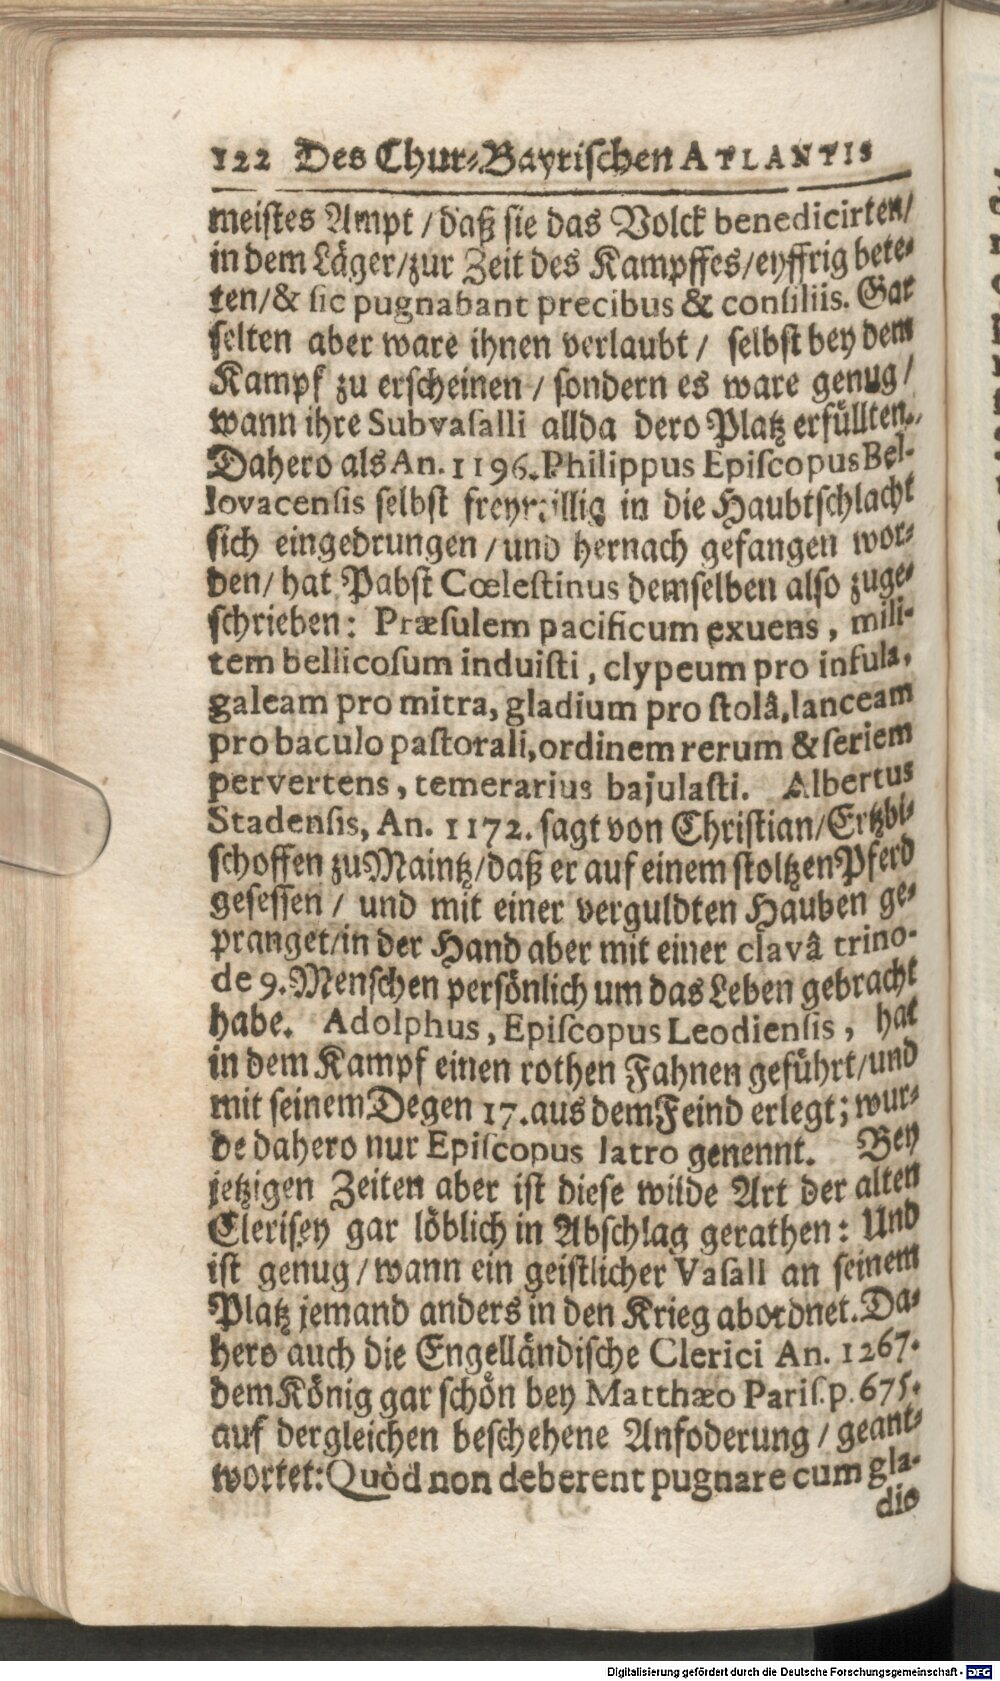 122 Des Chur-Bayrischen ATLANTIS
meistes Ampt / daß sie das Volck benedicirten/
in dem Läger/zur Zeit des Kampffes/eyffrig bete-
ten/& sic pugnabant precibus & consiliis. Gar
selten aber ware ihnen verlaubt / selbst bey dem
Kampf zu erscheinen / sondern es ware genug/
wann ihre Subvasalli allda dero Platz erfüllten.
Dahero als An. 1196. Philippus Episcopus Bel-
lovacensis selbst freywillig in die Haubtschlacht
sich eingedrungen / und hernach gefangen wor-
den/ hat Pabst Cœlestinus demselben also zuge-
schrieben: Præsulem pacificum exuens, mili-
tem bellicosum induisti, clypeum pro infula,
galeam pro mitra, gladium pro stolâ, lanceam
pro baculo pastorali, ordinem rerum & seriem
pervertens, temerarius bajulasti. Albertus
Stadensis, An. 1172. sagt von Christian/Ertzbi-
schoffen zu Maintz/daß er auf einem stoltzen Pferd
gesessen / und mit einer verguldten Hauben ge-
pranget/in der Hand aber mit einer clavâ trino-
de 9. Menschen persönlich um das Leben gebracht
habe. Adolphus, Episcopus Leodiensis, hat
in dem Kampf einen rothen Fahnen geführt/und
mit seinem Degen 17. aus dem Feind erlegt; wur-
de dahero nur Episcopus latro genennt. Bey
jetzigen Zeiten aber ist diese wilde Art der alten
Clerisey gar löblich in Abschlag gerathen: Und
ist genug / wann ein geistlicher Vasall an seinem
Platz jemand anders in den Krieg abordnet. Da-
hero auch die Engelländische Clerici An. 1267.
dem König gar schön bey Matthæo Paris. p. 675.
auf dergleichen beschehene Anfoderung / geant-
wortet: Quòd non deberent pugnare cum gla-
dio
Digitalisierung gefördert durch die Deutsche Forschungsgemeinschaft - DFG